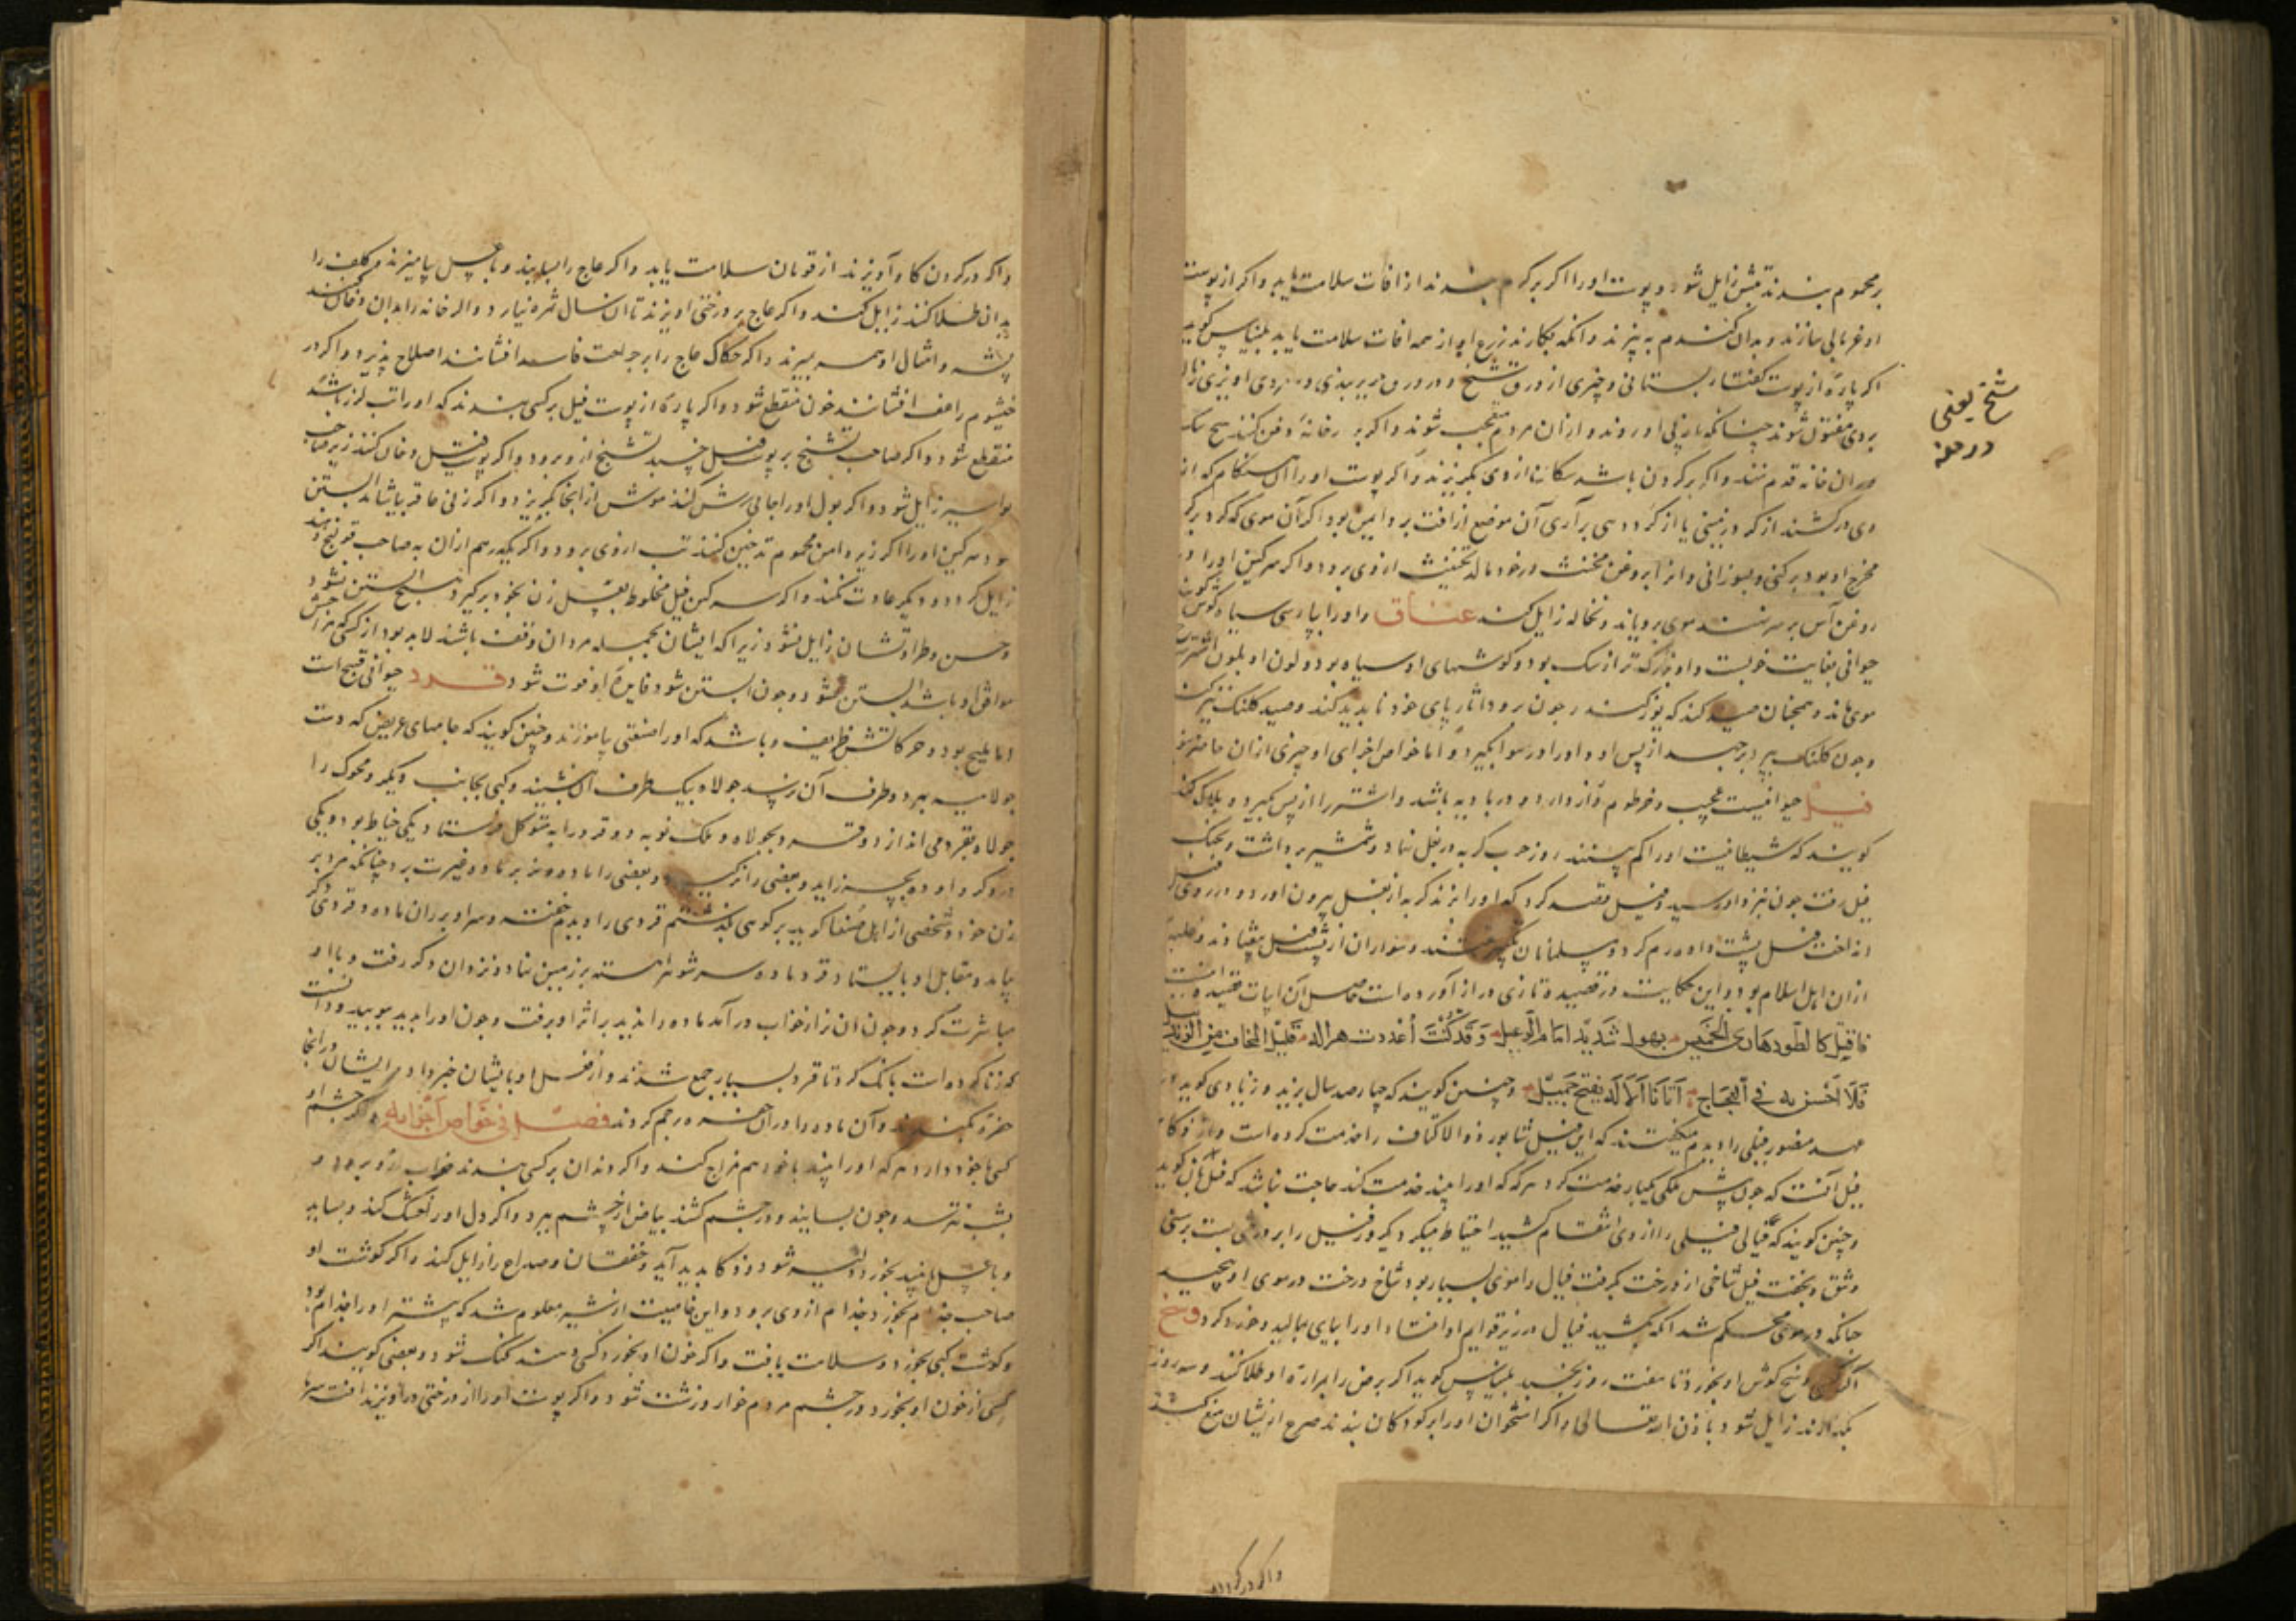 بر محموم بندند تبش زایل شود و پوست او را اکر بر کرم بندند از افات سلامت یابد و اکر از پوست
او غربالی سازند و بدان کندم به بیزند و انکه بکارند زرع او از همه افات سلامت یابد بلیناس کوید
اکر پارهٔ از پوست کفتار بستانی و چیزی از ورق شخ و در ورق حریر بندی و
بر وی مفتون شوند چنانکه از پی او روند و از ان مردم متعجب شوند و اکر بر در خانهٔ دفن کنند هیچ سک
در ان خانه قدم ننهد و اکر بر کردن باشد سکان از وی بکریزند و اکر پوست او را ان هنکام که از
وی برکشند از کرد زمینی یا از کرد دهی برآری آن موضع از افت برد ایمن بود و اکر آن موی که کرد بر کرد
مخرج او بود برکنی و بسوزانی و انرا بروغن مخنث در خود مالد تخنیث از وی برود و اکر سرکین او را در
روغن آس بر سر نهند موی برویاند و نخاله زایل کند عناق و او را بپارسی سیاه کوش کویند
حیوانی بغایت خوبست و او بزرکتر از سک بود و کوشهای او سیاه بود و لون او بلون اشتر سرخ
موی ماند و همچنان صید کند که یوز کند و چون برود اثار پای خود نابدید کند و صید کلنک نیز کند
و چون کلنک بپرد برجهد از پس او و او را در هوا بکیرد و اما خواص اجزای او چیزی از ان حاضر نبود
فیل حیوانیست عجیب و خرطوم دراز دارد و در بادیه باشد و اشتر را از پس کیرد و هلاک کند
کویند که شیطانیست او را کم بینند روز حرب کربه در بغل نهاد و شمشیر برداشت و بجنک
فیل رفت چون نزد او رسید و فیل قصد کرد که او را بزند کربه از بغل بیرون آورد و در روی فیل
انداخت فیل پشت داد و رم کرد و مسلمانان تکبیر کفتند و سواران از پشت فیل بیفتادند و غلبه
از ان اهل اسلام بود و این حکایت در قصیدهٔ تازی دراز آورده است حاصل آن ابیات قصیده اینست
فاقبل کالطود هادی الخمیس بهول شدید امام الرعیل وقد کنت أعددت هرا له قلیل المخاف من الزندبیل
فلا أحسن به فی العجاج أتانا الاله بفتح جمیل و چنین کویند که چهار صد سال بزید و زیادی کوید در
عهد منصور فیلی را دیدم میکفتند که این فیل شابور ذو الاکتاف را خدمت کرده است و از ذکای
فیل آنست که چون پیش ملکی یکبار خدمت کرد هر که که او را بیند خدمت کند حاجت نباشد که فیلبان کوید
و چنین کویند که فیالی فیلی را از وی انتقام کشید احتیاط میکرد یک روز فیل را بر درختی بست برسن
وثق و بخفت فیل شاخی از درخت برکرفت فیال را موی بسیار بود شاخ درخت در موی او پیچید
چنانکه در موی محکم شد انکه بکشید فیال در زیر قوایم او افتاد او را بپای بمالید و خرد کرد
و شیخ کوش او بخورد تا هفت روز بخسبد بلیناس کوید اکر برص را بمرارهٔ او طلا کنند و سه روز
بکذارند زایل شود باذن الله تعالی و اکر استخوان او را بر کودکان بندند صرع از یشان منع کند
شخ یعنی
درمنه
و اکر در کردن
و اکر در کردن کاو آویزند از قومان سلامت یابد و اکر عاج را بسایند و با عسل بیامیزند و کلف را
بدان طلا کنند زایل کند و اکر عاج بر درختی اویزند تا ان سال ثمره نیارد و اکر خانه را بدان دخان کنند
پشه و امثال او همه بمیرند و اکر حکاک عاج را بر جراحت فاسد افشانند اصلاح پذیرد و اکر در
خیشوم راعف افشانند خون منقطع شود و اکر پارهٔ از پوست فیل بر کسی بندند که او را تب لرز باشد
منقطع شود و اکر صاحب تشنج بر پوست فیل خسبد تشنج از و برود و اکر پوست فیل دخان کنند زیر صاحب
بواسیر زایل شود و اکر بول او را جائی رش کنند موش از انجا بکریزد و اکر زنی عاقر بیاشامد آبستن
شود سرکین او را اکر زیر دامن محموم تدخین کنند تب از وی برود و اکر یکدرهم از ان به صاحب قولنج دهند
زایل کردد و دیکر عادت نکند و اکر سرکین فیل مخلوط بعسل زن بخود برکیرد هیچ آبستن نشود
و حسن و طراوتشان زایل نشود زیرا که ایشان بجمله مردان وقف باشند لابد بود از کسی که مزاجش
موافق او باشد آبستن شود و چون آبستن شود فایدهٔ او فوت شود قرد حیوانی قبیح است
اما ملیح بود و حرکاتش ظریف و باشد که او را صنعتی بیاموزند و چنین کویند که جامهای عریض که دست
جولا میبرد و طرف آن نرسد جولاه بیک طرف آن نشیند و کپی بجانب دیکر و مکوک را
جولاه بقرد می اندازد و قرد بجولاه و ملک نوبه دو قرد را به متوکل فرستاد یکی خیاط بود و یکی
درودکر و او ده بچه زاید و بعضی را نر و بعضی را ماده و نر بر ماده غیرت برد چنانکه مرد بر
زن خود و شخصی از اهل صنعا کوید بر کوهی میکذشتم قردی را دیدم خفته و سر او بر ران ماده و قردی دکر
بیامد و مقابل او بایستاد قرد ماده سر شوهر آهسته بر زمین نهاد و نزد ان دکر رفت و با او
مباشرت کرد و چون ان نر از خواب درآمد ماده را ندید بر اثر او برفت و چون او را بدید ببویید و دانست
که زنا کرده است بانک کرد تا قرد بسیار جمع شدند و از فعل او بایشان خبر داد ایشان در انجا
حفرهٔ بکندند و آن ماده را در ان حفره رجم کردند فصل فی خواص اجزایه اکر چشم او
کسی با خود دارد هر که او را بیند با خود هم مزاج کند و اکر دندان بر کسی بندند خواب از و ببرد و
بشب نترسد و چون بسایند و در چشم کشند بیاض از چشم ببرد و اکر دل او را خشک کند و بساید
و با عسل بخورد دلیر شود و ذکا بدید آید و خفقان و صداع را زایل کند و اکر کوشت او
صاحب جذام بخورد جذام از وی برود و این خاصیت از شیر معلوم شد که بیشتر او را جذام بود
و کوشت کپی بخورد و سلامت یافت و اکر خون او بخورد کسی دهند کنک شود و بعضی کویند اکر
کسی از خون او بخورد در چشم مردم خوار و زشت شود و اکر پوست او را از درختی در اویزند افت سرما